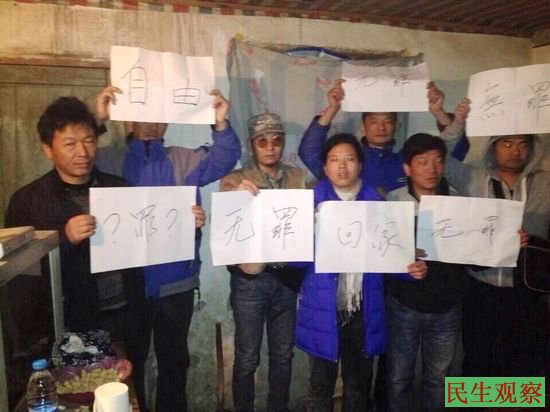 自由
无罪
無罪
?罪?
无罪
回家
无罪
民生观察